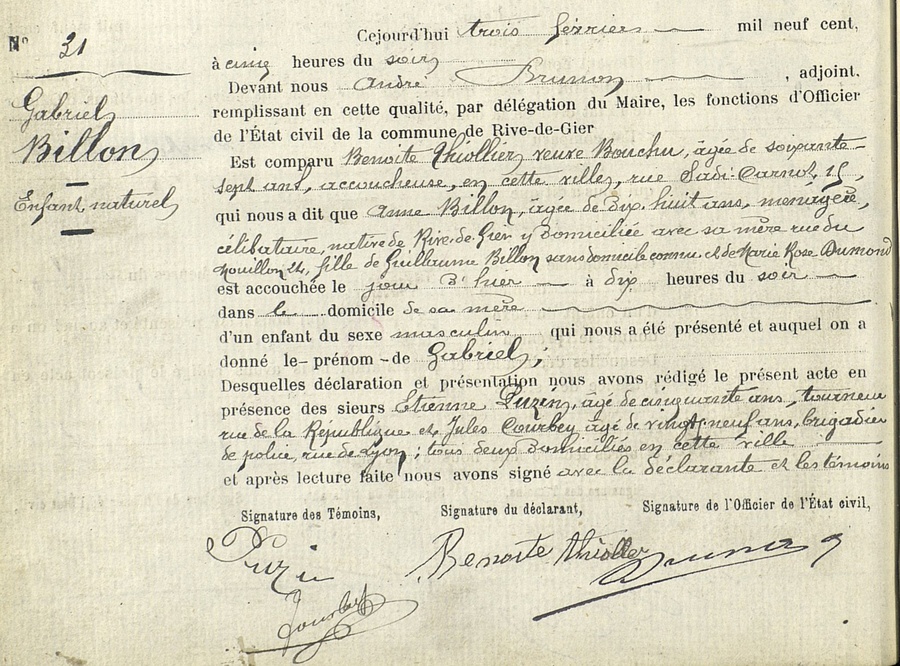 N° 21
Gabriel
Billon
Enfant naturel
Cejourd'hui trois février mil neuf cent,
à cinq heures du soir
Devant nous André Brunon, adjoint.
remplissant en cette qualité, par délégation du Maire, les fonctions d'Officier
de l'État civil de la commune de Rive-de-Gier
Est comparu Benoite Thiollier veuve Bouchu, agée de soixante-
sept ans, accoucheuse, en cette ville, rue Sadi-Carnot, 15,
qui nous a dit que Anne Billon, âgée de dix huit ans, ménagère,
célibataire, native de Rive-de-Gier y domiciliée avec sa mère rue du
Mouillon 24, fille de Guillaume Billon sans domicile connu et de Marie Rose Dumond
est accouchée le jour d'hier à dix heures du soir
dans le domicile de sa mère
d'un enfant du sexe masculin qui nous a été présenté et auquel on a
donné le prénom de Gabriel;
Desquelles déclaration et présentation nous avons rédigé le présent acte en
présence des sieurs Etienne Puzin, âgé de cinquante ans, tourneur
rue de la République et Jules Courbey âgé de vingt neuf ans, brigadier
de police, rue de Lyon; tous deux domiciliés en cette ville
et après lecture faite nous avons signé avec la déclarante et les témoins
Signature des Témoins, Signature du déclarant, Signature de l'Officier de l'État civil,
Puzin Benoite thioller Brunon
Courbey